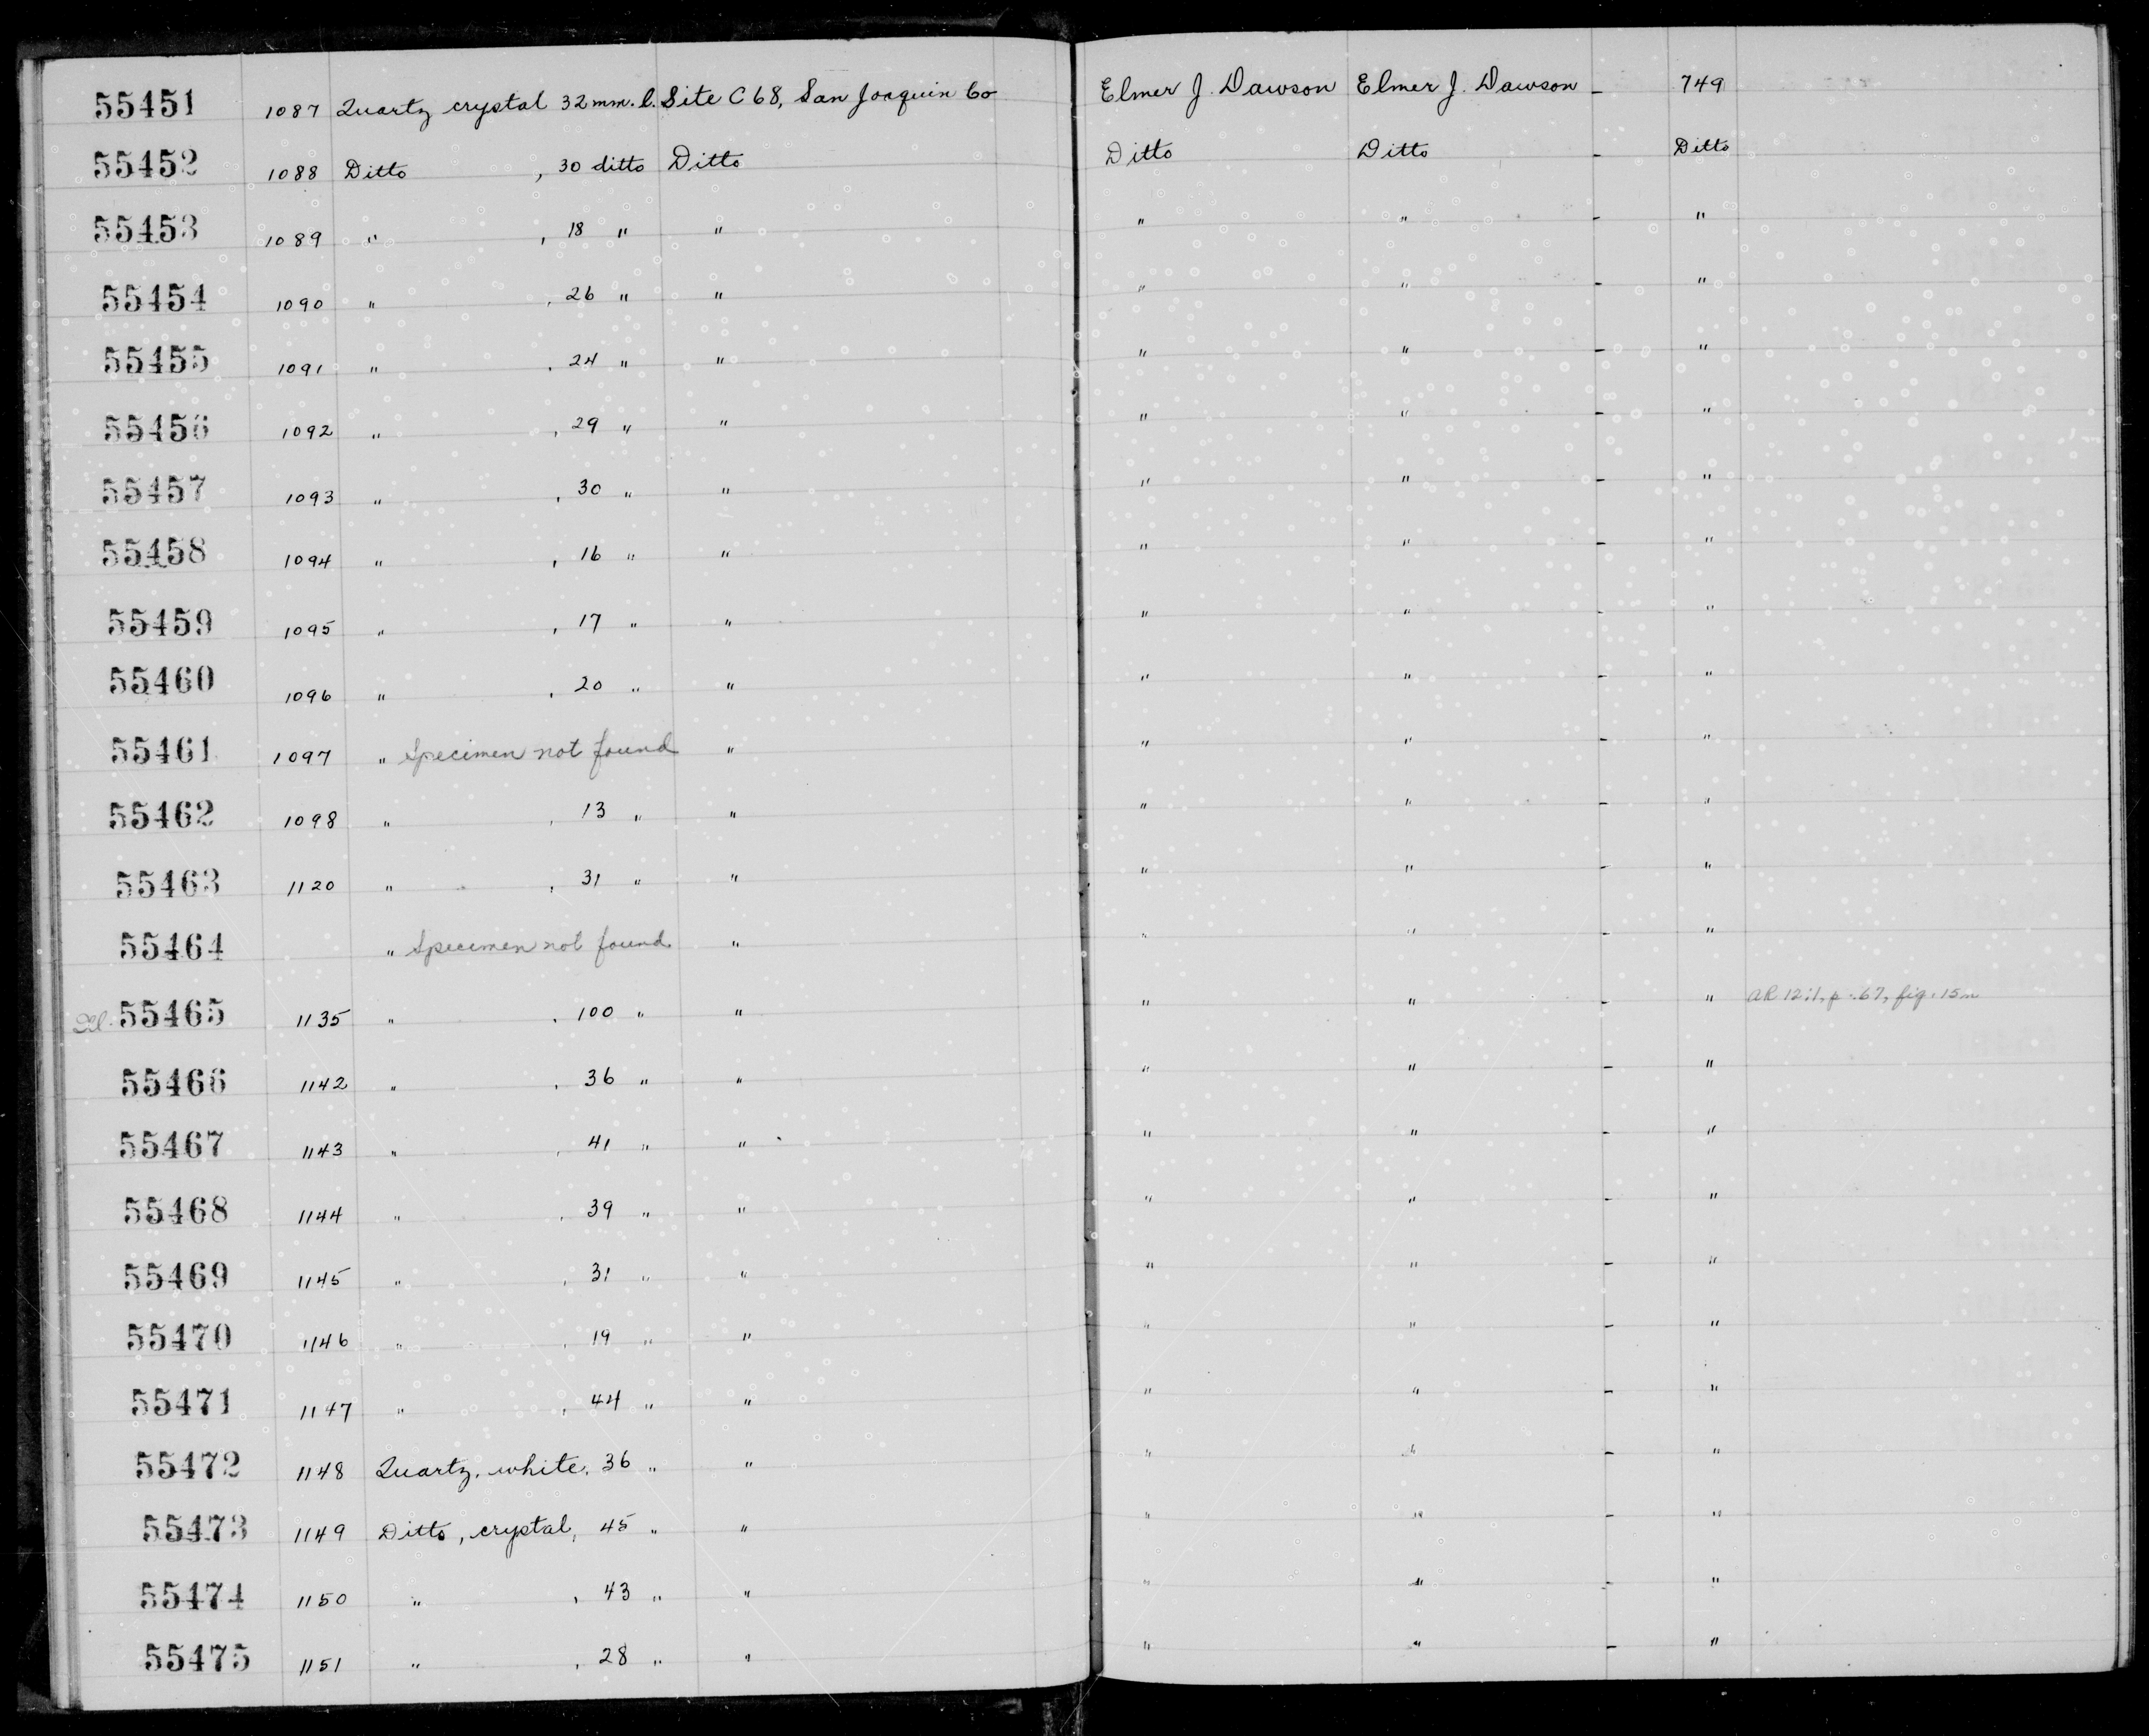 55451 1087 Quartz crystal 32 mm. l. Site C 68, San Joaquin Co Elmer J. Dawson Elmer J. Dawson - 749
55452 1088 Ditto , 30 ditto Ditto Ditto Ditto - Ditto
55453 1089 " , 18 " " " " - "
55454 1090 " , 26 " " " " - "
55455 1091 " , 24 " " " " - "
55456 1092 " , 29 " " " " - "
55457 1093 " , 30 " " " " - "
55458 1094 " , 16 " " " " - "
55459 1095 " , 17 " " " " - "
55460 1096 " , 20 " " " " - "
55461 1097 " Specimen not found " " " - "
55462 1098 " , 13 " " " " - "
55463 1120 " , 31 " " " " - "
55464 " Specimen not found " " " - "
55465 1135 " , 100 " " " " - " AR 12:1, p. 67, fig. 15n
55466 1142 " , 36 " " " " - "
55467 1143 " , 41 " " " " - "
55468 1144 " , 39 " " " " - "
55469 1145 " , 31 " " " " - "
55470 1146 " , 19 " " " " - "
55471 1147 " , 44 " " " " - "
55472 1148 Quartz, white, 36 " " " " - "
55473 1149 Ditto, crystal, 45 " " " " - "
55474 1150 " , 43 " " " " - "
55475 1151 " , 28 " " " " - "